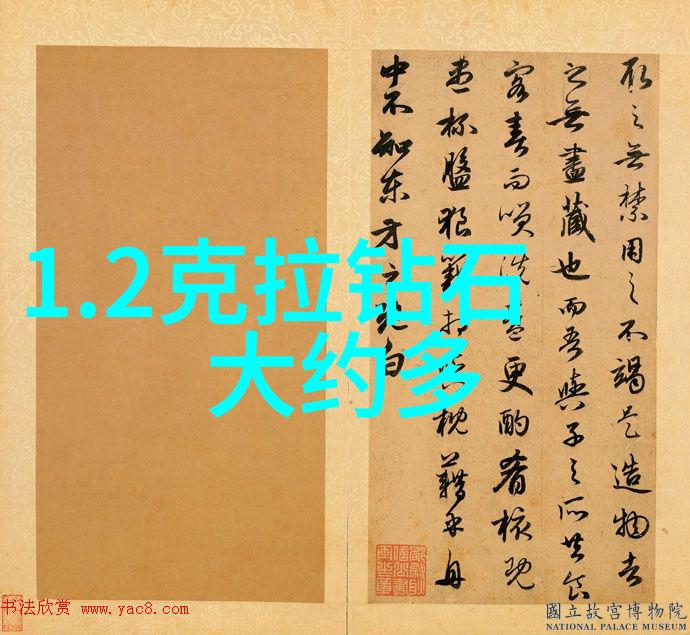 1.2克拉钻石
大约多
取之無禁用之不竭是造物者
之無盡藏也而吾與子之所共食
客喜而笑洗盞更酌肴核既
盡杯盤狼籍相與枕藉乎舟
中不知東方之既白
书法欣赏 www.yac8.com
國立故宮博物院
NATIONAL PALACE MUSEUM